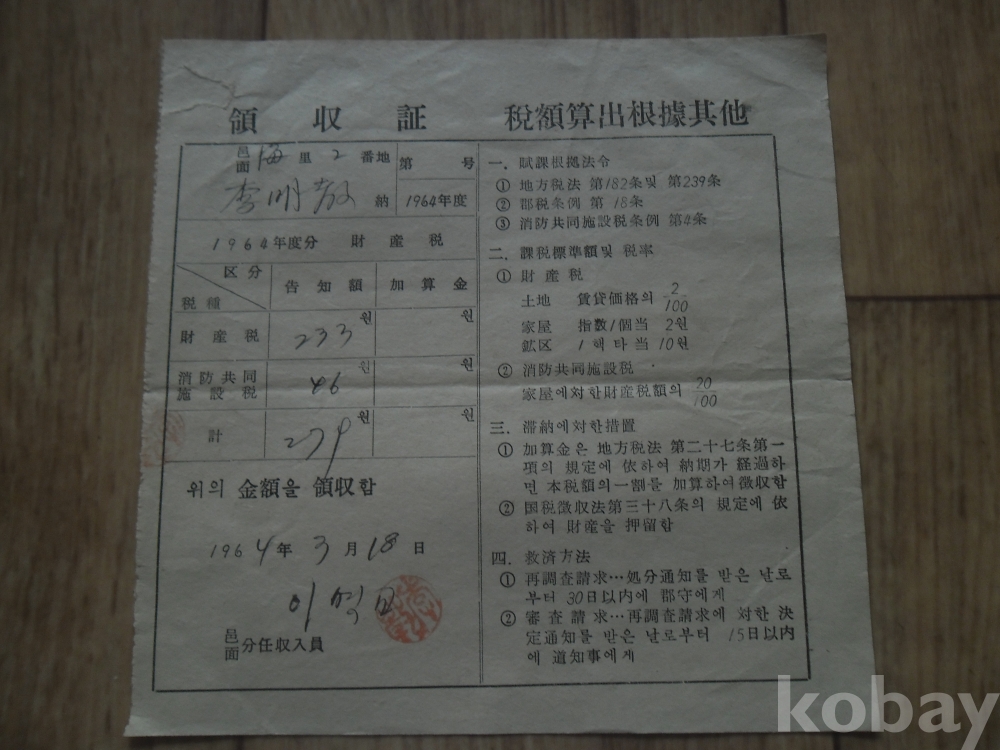 領収証
邑面 海里 2 番地
第 号
李明教 納
1964年度
1964年度分 財産税
区分
税種
告知額
加算金
財産税
233원
원
消防共同施設税
46원
원
計
279
원
위의 金額을 領収함
1964年 3月 18日
이
邑面 分任収入員
税額算出根據其他
一. 賦課根拠法令
① 地方税法 第182条및 第239条
② 郡税条例 第 18条
③ 消防共同施設税条例 第4条
二. 課税標準額및 税率
① 財産税
土地 賃貸価格의 2/100
家屋 指数/個当 2원
鉱区 1해타当 10원
② 消防共同施設税
家屋에対한財産税額의 20/100
三. 滞納에対한措置
① 加算金은 地方税法 第二十七条第一
項의 規定에 依하여 納期가 経過하
면 本税額의一割를 加算하여徴収함
② 国税徴収法第三十八条의 規定에 依
하여 財産을 押留함
四. 救済方法
① 再調査請求…処分通知를 받은 날로
부터 30日以内에 郡守에게
② 審査請求…再調査請求에 対한 決
定通知를 받은 날로부터 15日以内
에 道知事에게
kobay